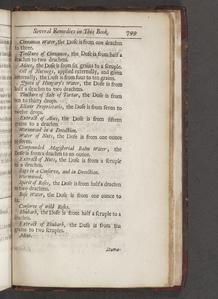 Several Remedies in This Book. 799
Cinnamon Water, the Dose is from one drachm
to three.
Tincture of Cinnamon, the Dose is from half a
drachm to two drachms.
Mace, the Dose is from six grains to a scruple.
Oil of Nutmegs, applied externally, and given
internally, the Dose is from four to ten grains.
Queen of Hungary's Water, the Dose is from
half a drachm to two drachms.
Tincture of Salt of Tartar, the Dose is from
ten to thirty drops.
Elixir Proprietatis, the Dose is from seven to
twelve drops.
Extract of Aloes, the Dose is from fifteen
grains to a drachm.
Wormwood in a Decoction.
Water of Nuts, the Dose is from one ounce
to
Compounded Magisterial Balm Water, the
Dose is from a drachm to an ounce.
Extract of Nuts, the Dose is from a scruple
to a drachm.
Sage in a Conserve, and in Decoction.
Wormwood.
Spirit of Roses, the Dose is from half a drachm
to two drachms.
Water, the Dose is from one ounce to
Conserve of wild Roses.
Rhubarb, the Dose is from half a scruple to a
drachm.
Extract of Rhubarb, the Dose is from ten
grains to two scruples.